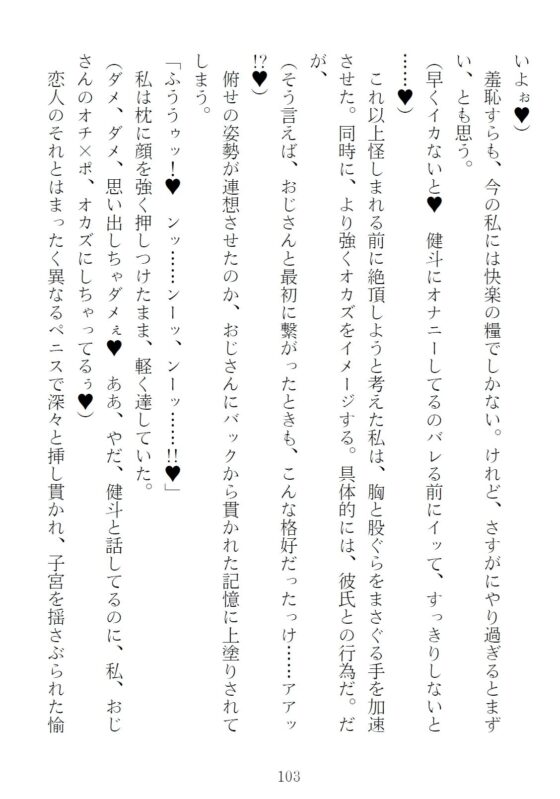 いよぉ♥)
　羞恥すらも、今の私には快楽の糧でしかない。けれど、さすがにやり過ぎるとまず
い、とも思う。
(早くイカないと♥　健斗にオナニーしてるのバレる前にイッて、すっきりしないと
……♥)
　これ以上怪しまれる前に絶頂しようと考えた私は、胸と股ぐらをまさぐる手を加速
させた。同時に、より強くオカズをイメージする。具体的には、彼氏との行為だ。だ
が、
(そう言えば、おじさんと最初に繋がったときも、こんな格好だったっけ……アアッ
!?♥)
　俯せの姿勢が連想させたのか、おじさんにバックから貫かれた記憶に上塗りされて
しまう。
「ふううゥッ！♥　ンッ……ンーッ、ンーッ……!!♥」
　私は枕に顔を強く押しつけたまま、軽く達していた。
(ダメ、ダメ、思い出しちゃダメぇ♥　ああ、やだ、健斗と話してるのに、私、おじ
さんのオチ×ポ、オカズにしちゃってるぅ♥)
　恋人のそれとはまったく異なるペニスで深々と挿し貫かれ、子宮を揺さぶられた愉
103